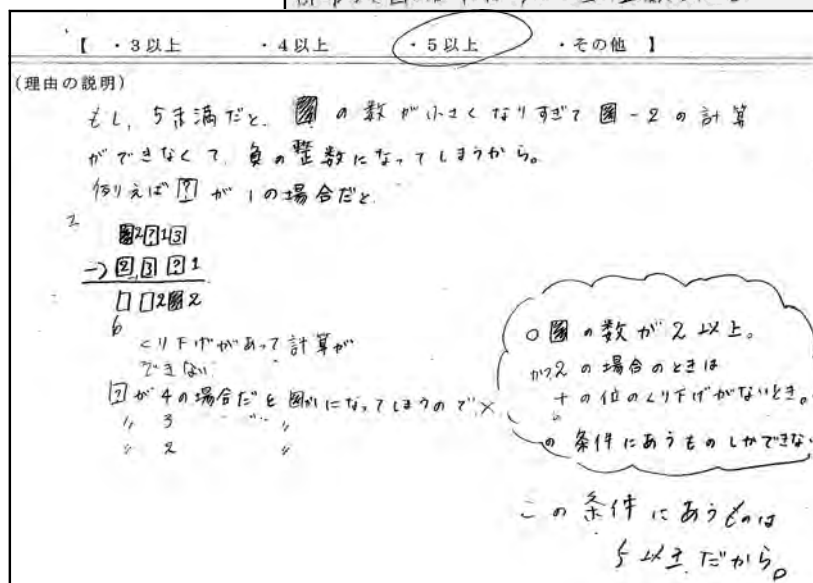 【 ・3以上 ・4以上 ・5以上 ・その他 】
(理由の説明)
もし、5未満だと、図の数が小さくなりすぎて図-2の計算
ができなくて、負の整数になってしまうから。
例えば?が1の場合だと
2
図2?13
-)2,3?1
□□2図2
6
くり下げがあって計算が
できない
?が4の場合だと図が1になってしまうので×
〃 3 〃
〃 2 〃
○図の数が2以上。
かつ2の場合のときは
十の位のくり下げがないとき。
の条件にあうものしかできない
この条件にあうものは
5以上だから。